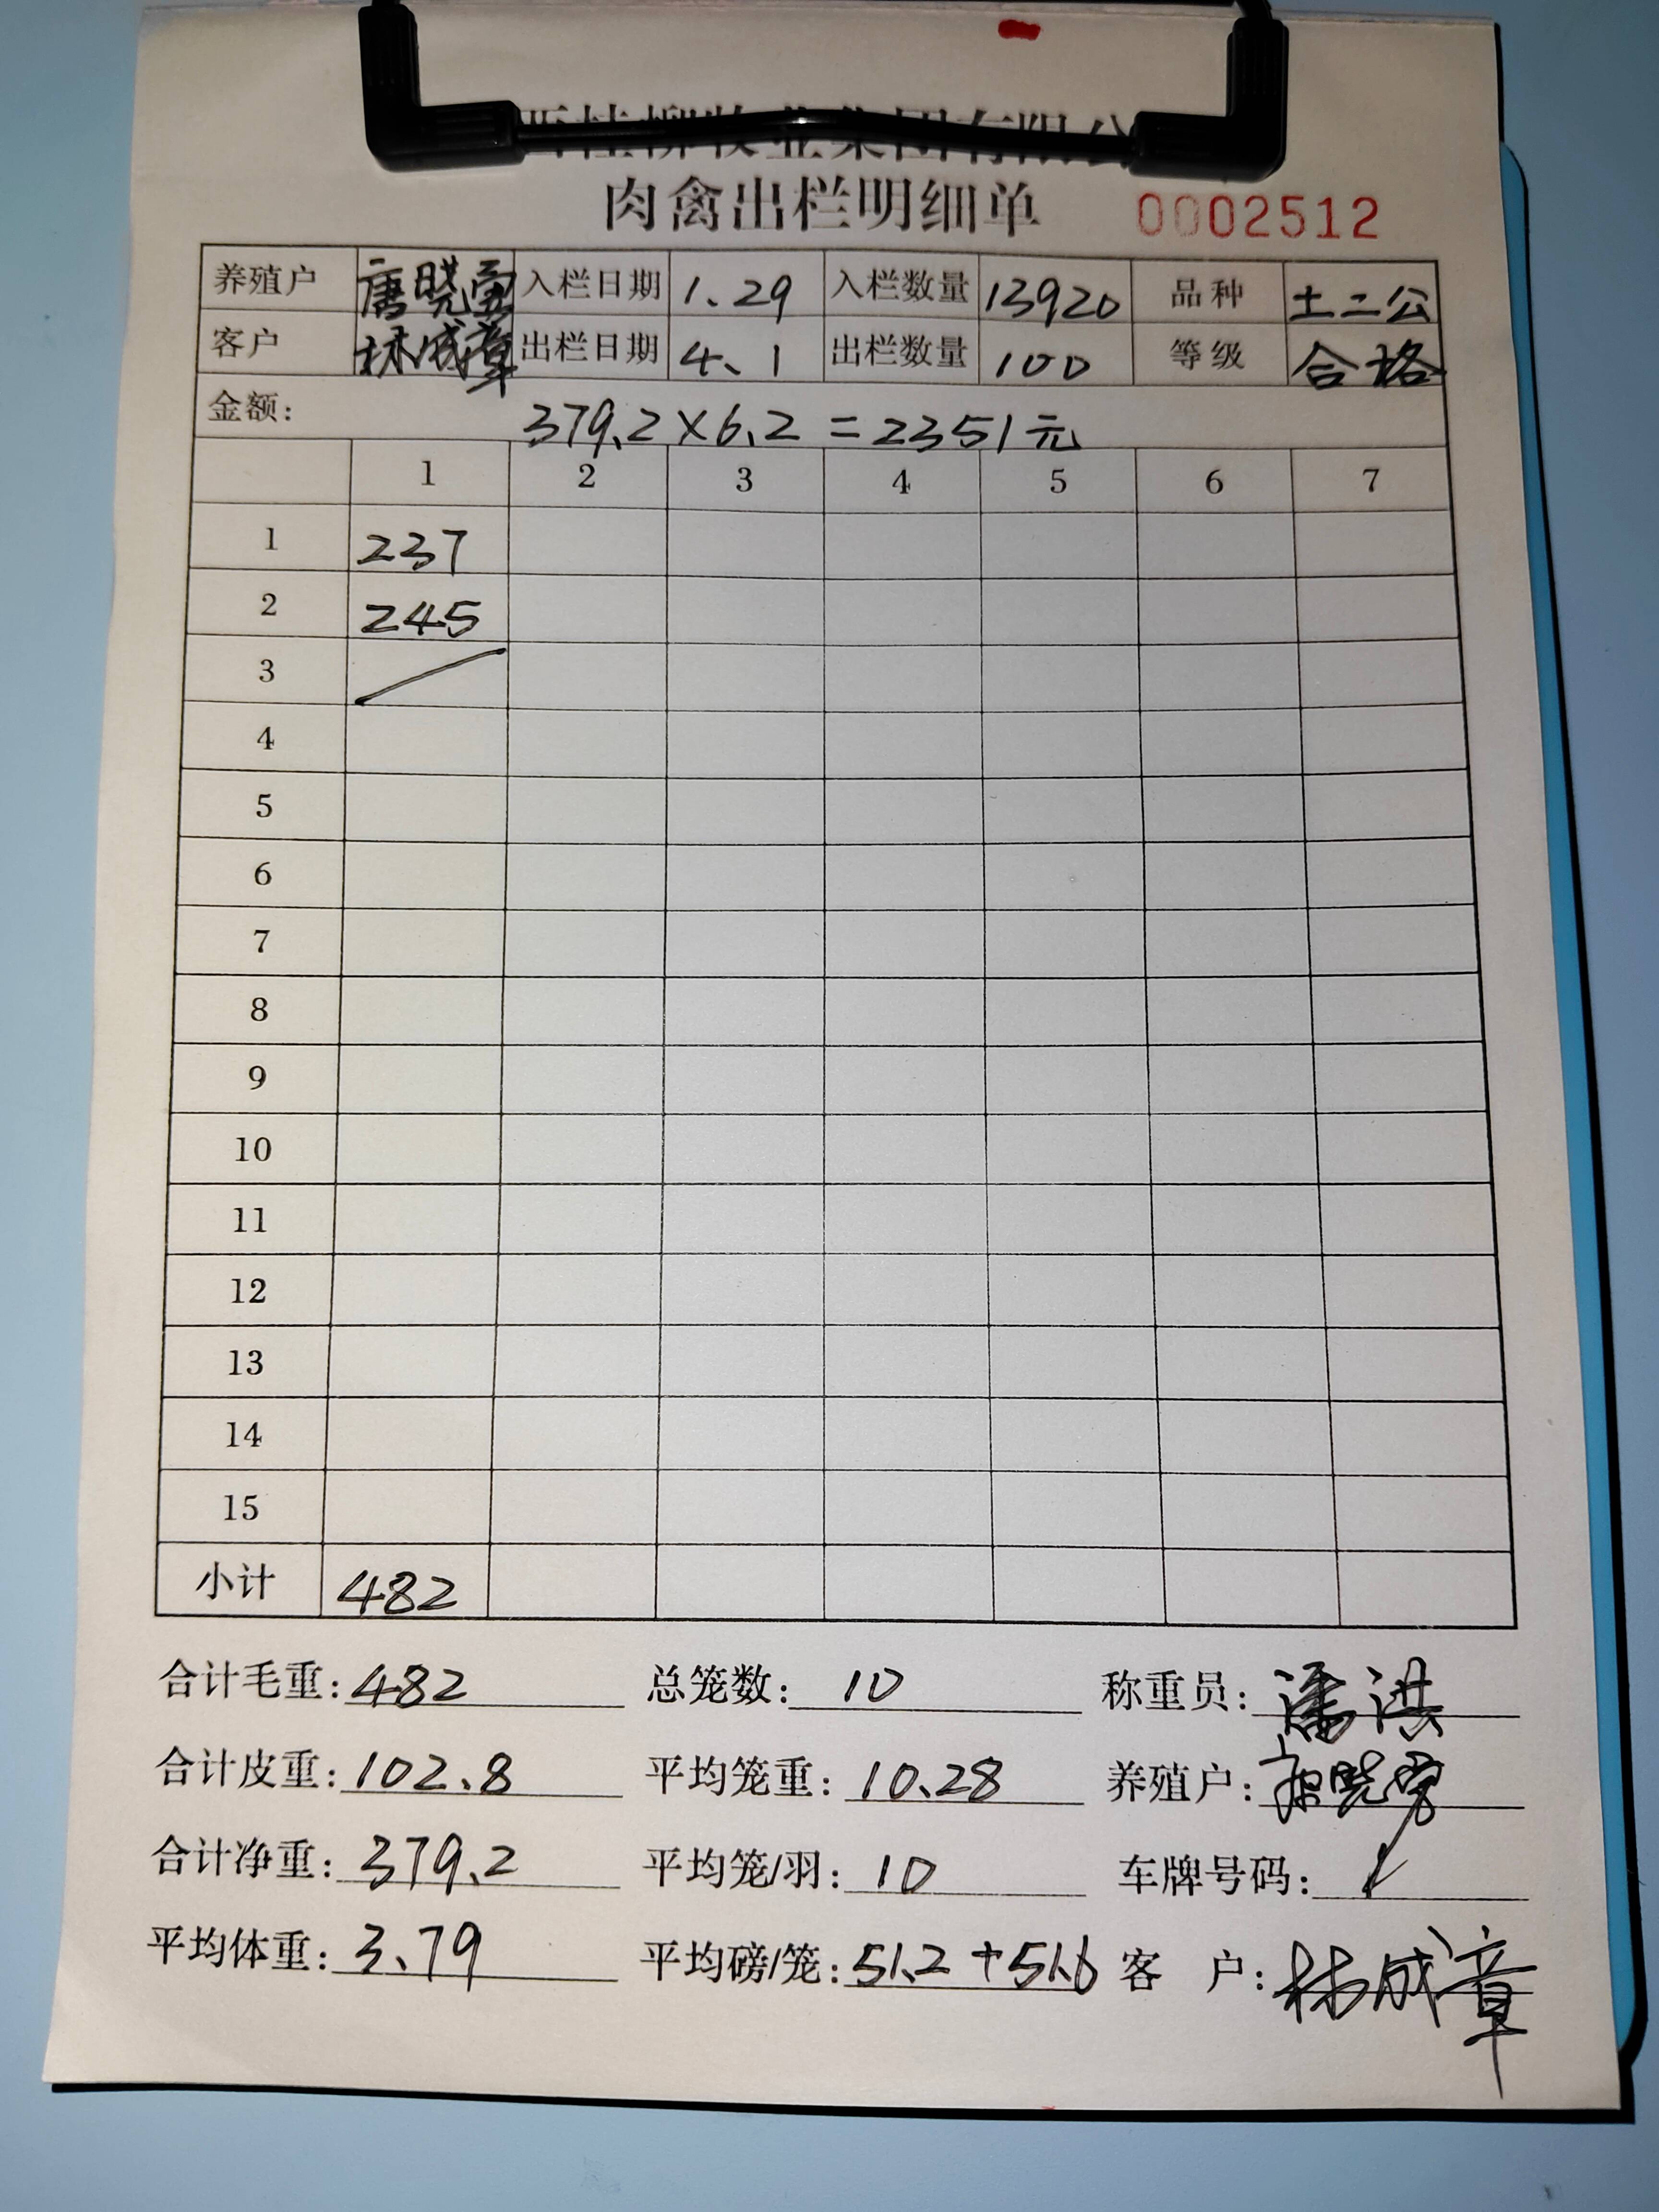 西桂柳牧业集团有限公
肉禽出栏明细单 0002512
养殖户 唐晓宝 入栏日期 1.29 入栏数量 13920 品种 土二公
客户 林成章 出栏日期 4.1 出栏数量 100 等级 合格
金额: 379.2×6.2=2351元
1 2 3 4 5 6 7
1 237
2 245
3
4
5
6
7
8
9
10
11
12
13
14
15
小计 482
合计毛重: 482 总笼数: 10 称重员: 潘洪
合计皮重: 102.8 平均笼重: 10.28 养殖户:
合计净重: 379.2 平均笼/羽: 10 车牌号码:
平均体重: 3.79 平均磅/笼: 51.2+51.6 客户: 林成章